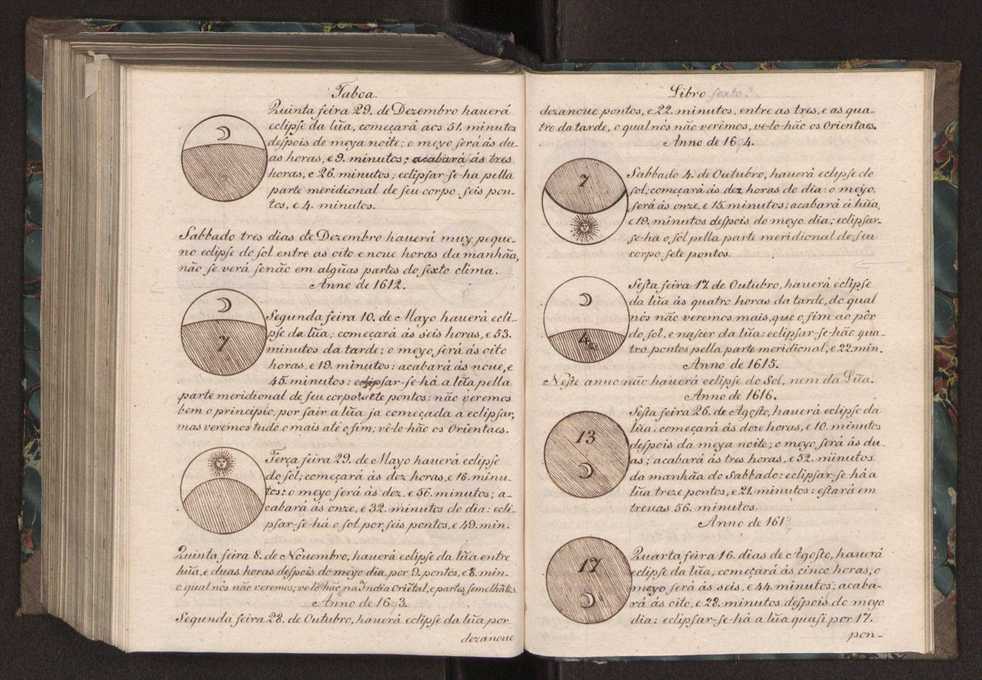 Taboa.
Quinta feira 29. de Dezembro hauerá
eclipse da lũa, começará aos 51. minutos
despois de meya noite; o meyo será ás du-
as horas, e 9. minutos; acabará ás tres
horas, e 26. minutos; eclipsar-se-ha pella
parte meridional de seu corpo, seis pon-
tos, e 4. minutos.
7
Sabbado tres dias de Dezembro hauerá muy peque-
no eclipse do sol entre as oito e noue horas da manhãa,
não se verá senão em algũas partes do sexto clima.
Anno de 1612.
Segunda feira 10. de Mayo hauerá ecli-
pse da lũa; começará às seis horas, e 53.
minutos da tarde; o meyo, será ás oito
horas, e 19. minutos: acabará ás noue, e
45. minutos: eclipsar-se-há a lũa pella
parte meridional de seu corpo sete pontos: não veremos
bem o principio, por sair a lũa ja começada a eclipsar,
mas veremos tudo o mais até o fim; vê-lo-hão os Orientaes.
7
Terça feira 29. de Mayo hauerá eclipse
do sol; começará ás dez horas, e 16. minu-
tos: o meyo será ás dez, e 56. minutos; a-
cabará ás onze, e 32. minutos do dia: ecli-
psar-se-há o sol por seis pontos, e 49. min.
Quinta feira 8. de Nouembro, hauerá eclipse da lũa entre
hũa, e duas horas despois do meyo dia, por 9. pontos, e 8. min.
o qual nós não veremos; ve-lo-hão na India Oriẽtal, e partes semelhãtes.
Anno de 16 3.
Segunda feira 28. de Outubro, hauerá eclipse da lũa por
dezanoue
Libro sexto.
dezanoue pontos, e 22. minutos, entre as tres, e as qua-
tro da tarde, o qual nós não verêmos, vê-lo-hão os Orientaes.
Anno de 16 4.
7
Sabbado 4. de Outubro, hauerá eclypse do
sol; começará ás dez horas do dia: o meyo,
será ás onze, e 15. minutos; acabará á hũa,
e 19. minutos despois do meyo dia; eclipsar-
se-há o sol pella parte meridional de seu
corpo sete pontos.
Sesta feira 17. de Outubro, hauerá eclipse
da lũa às quatro horas da tarde, do qual
nós não veremos mais, que o fim ao pôr
do sol, e nascer da lũa: eclipsar-se-hão qua-
tro pontos pella parte meridional, e 22 min.
4
Anno de 1615.
Neste anno não hauerá eclipse do Sol, nem da Lũa.
Anno de 1616.
Sesta feira 26. de Agosto, hauerá eclipse da
lũa: começará ás doze horas, e 10. minutos
despois da meya noite; o meyo, será ás du-
as; acabará ás tres horas, e 52. minutos
da manhãa do Sabbado: eclipsar-se-há a
lũa treze pontos, e 21. minutos: estará em
treuas 56. minutos.
13
Anno de 161
Quarta feira 16. dias de Agosto, hauerá
eclipse da lũa; começará ás cinco horas; o
meyo será ás seis, e 44. minutos; acaba-
rá ás oito, e 28. minutos despois do meyo
dia; eclipsar-se-há a lũa quasi por 17.
17
pon-